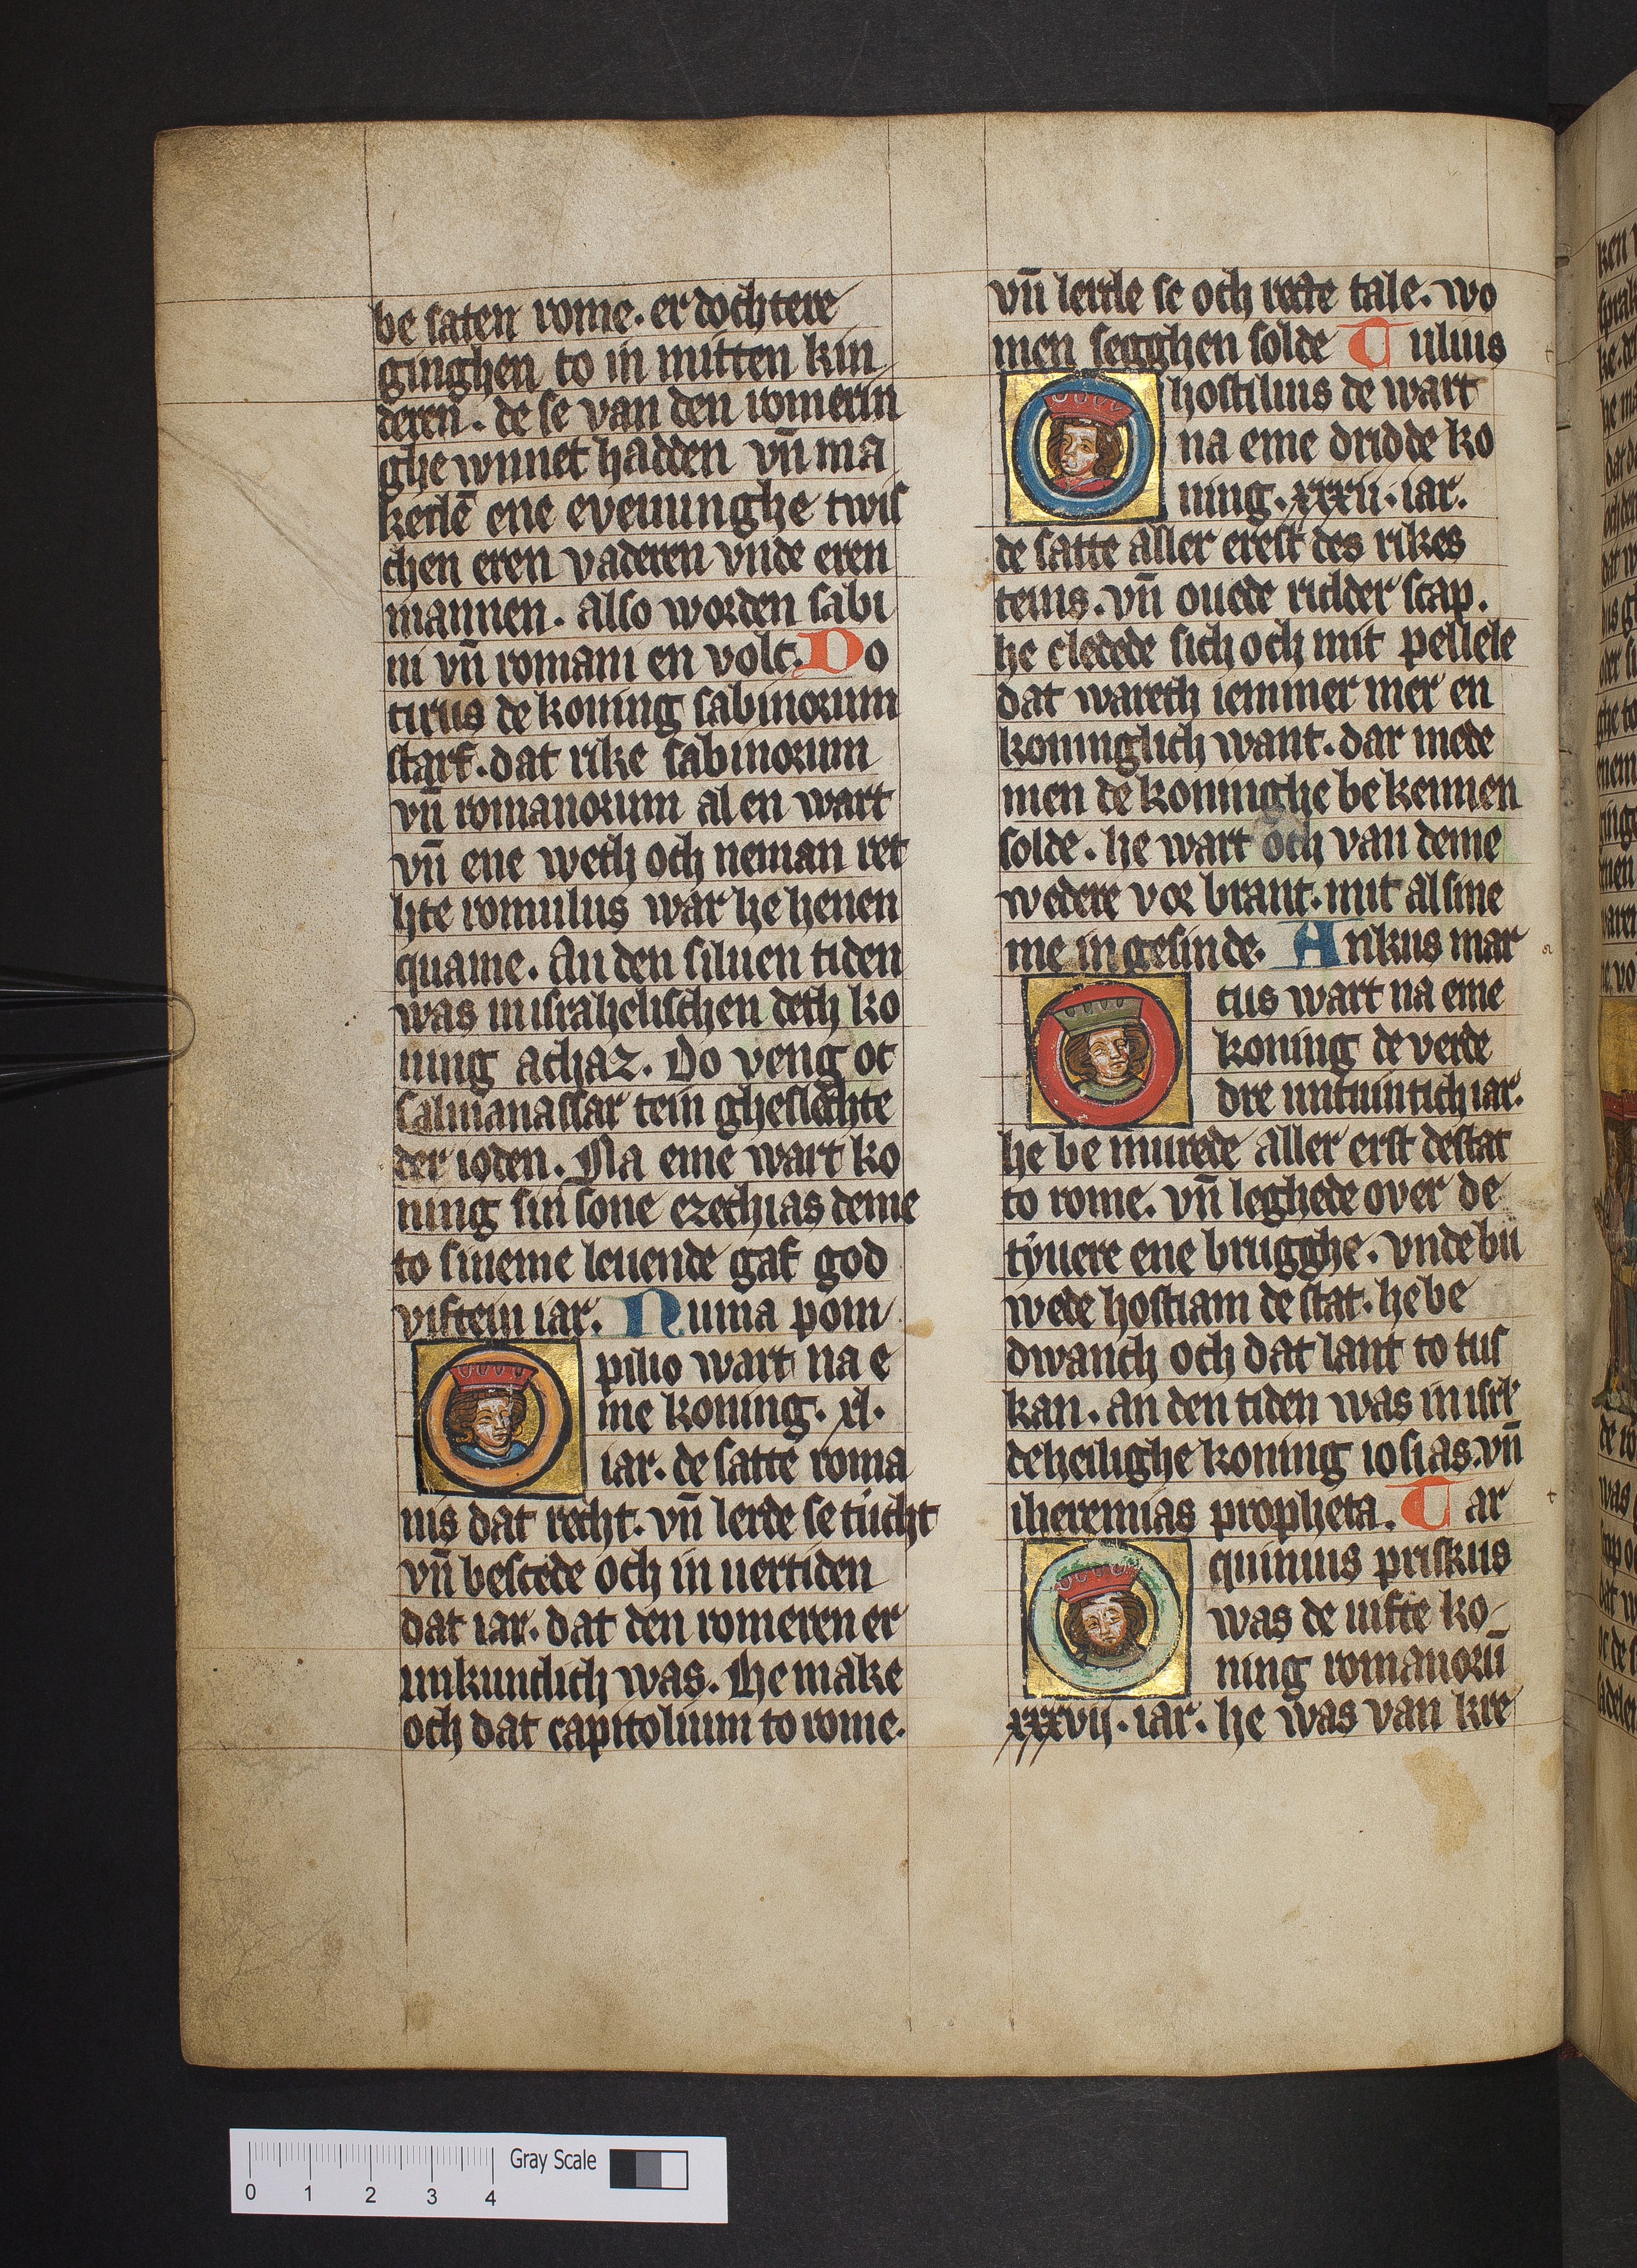 be saten rome. er dochtere
ginghen to in mitten kin
deren. de se van den romerin
ghe wnnet hadden vn̄ ma
kedē ene eveninghe twis
chen eren vaderen vnde eren
mannen. also worden sabi
ni vn̄ romani en volc. Do
tirus de koning sabinorum
starf. dat rike sabinorum
vn̄ romanorum al en wart
vn̄ ene weth och neman rec
hte romulus war he henen
quame. An den siluen tiden
was in israhelischen deth ko
ning achaz. Do veng oc
salmanassar tein gheslachte
der ioden. Na eme wart ko
ning sin sone ezechias deme
to sineme leuende gaf god
viftein iar. Numa pom
pilio wart na e
me koning. xl.
iar. de satte roma
nis dat recht. vn̄ lerde se tucht
vn̄ bescede och in uertiden
dat iar. dat den romeren er
unkuntlich was. He make
och dat capitolium to rome.
vn̄ lerde se och recte tale. wo
men segghen solde Tulius
hostilius de wart
na eme dridde ko
ning. xxxii. iar.
de satte aller erest des rikes
teins. vn̄ ouede ridder scap.
he cledede sich och mit pellele
dat wareth iemmer mer en
koninglich want. dar mede
men de koninghe be kennen
solde. he wart och van deme
wedere vor brant. mit al sine
me in gesinde. Ankus mar
cius wart na eme
koning de verde
dre untuintich iar.
he be murede aller erst de stat
to rome. vn̄ leghede over de
tyuere ene brugghe. vnde bu
wede hostiam de stat. he be
dwanch och dat lant to tus
kan. an den tiden was in isrl
de heilighe koning iosias. vn̄
iheremias propheta. Tar
quinius priskus
was de uifte ko-
ning romanorū
xxxvii. iar. he was van kre
0 1 2 3 4 Gray Scale